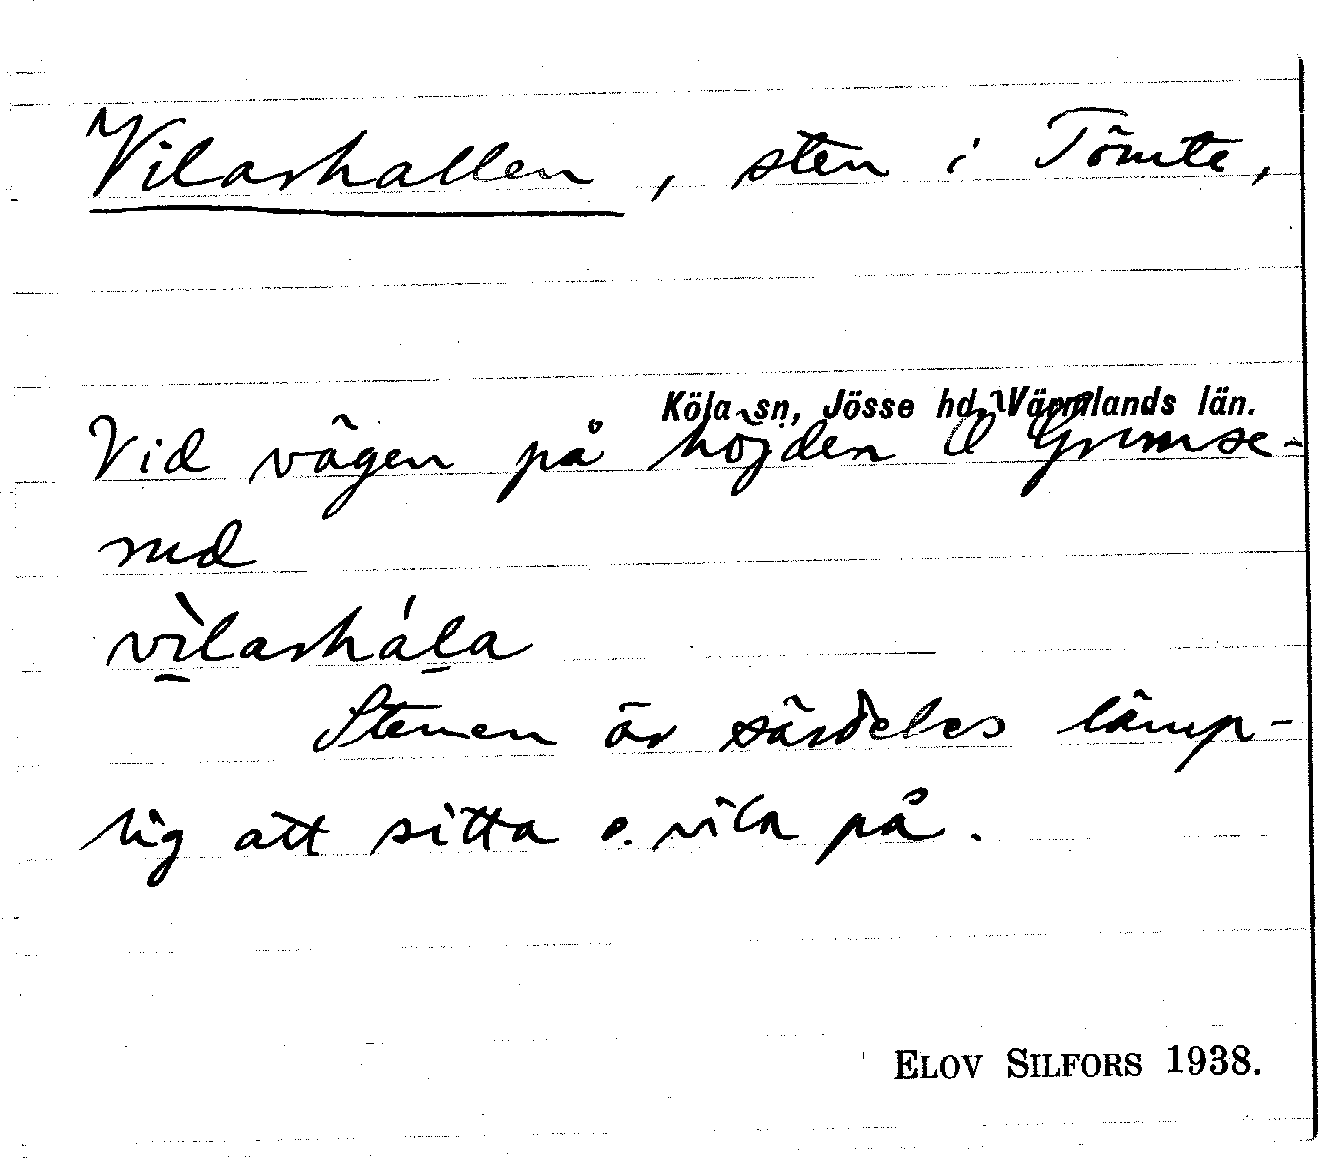 Vilarhallen, sten i Tömte,
Köla sn, Jösse hd, Värmlands län.
Vid vägen på höjden Ö Grimse-
rud
vìlarhála
Stenen är särdeles lämp-
lig att sitta o. vila på.
ELOV SILFORS 1938.